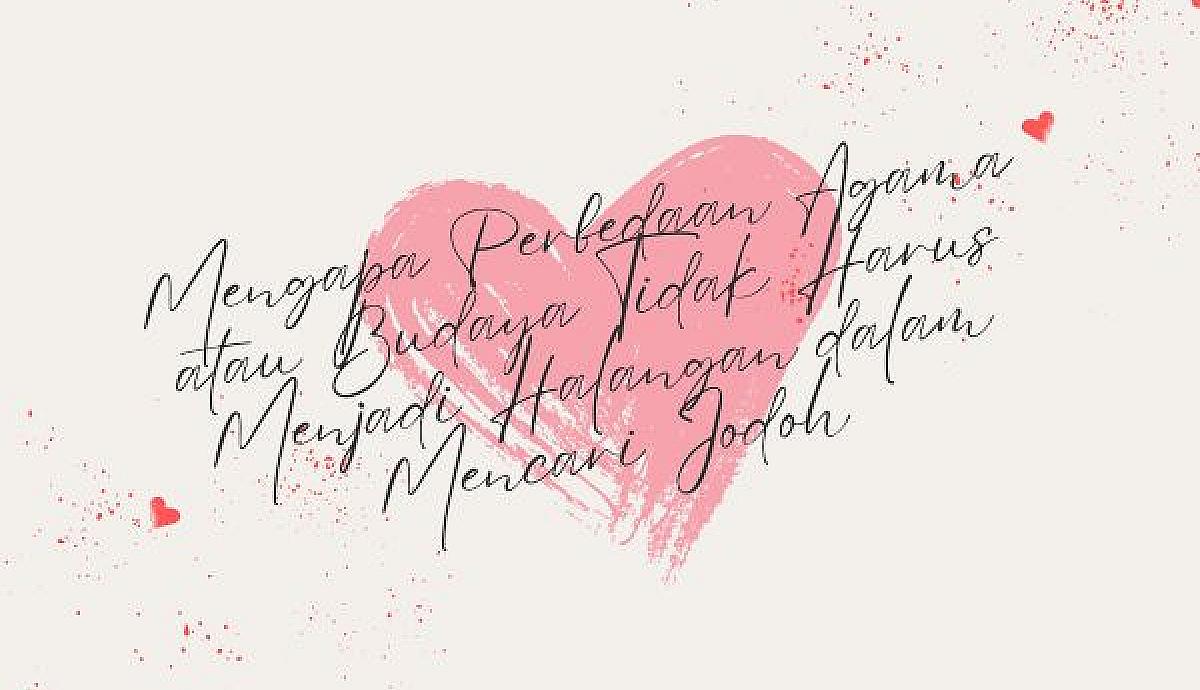 Mengapa Perbedaan Agama
atau Budaya Tidak Harus
Menjadi Halangan dalam
Mencari Jodoh